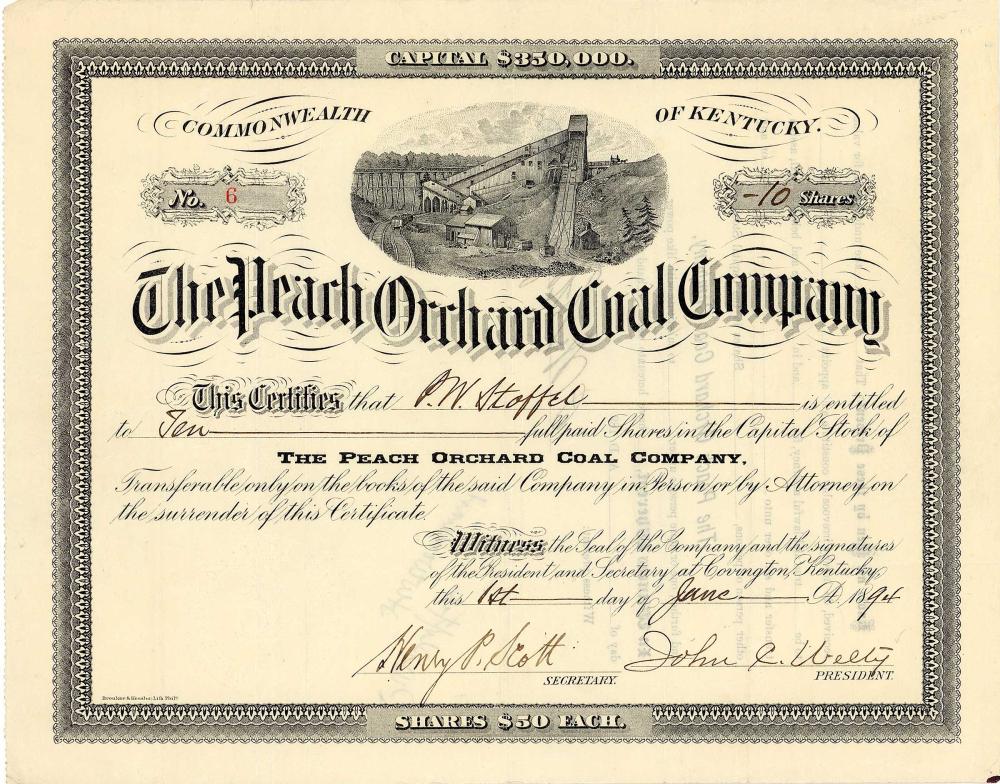 CAPITAL $350,000.
COMMONWEALTH OF KENTUCKY.
No. 6
-10 Shares
The Peach Orchard Coal Company
This Certifies that P. W. Stoffel is entitled
to Ten full paid Shares in the Capital Stock of
THE PEACH ORCHARD COAL COMPANY,
Transferable only on the books of the said Company in Person or by Attorney on
the surrender of this Certificate.
Witness the Seal of the Company and the signatures
of the President and Secretary at Covington, Kentucky,
this 1st day of June A.D. 1894
Henry P. Scott
SECRETARY.
John C. Welty
PRESIDENT.
Breuker & Kessler Lith. Phila.
SHARES $50 EACH.